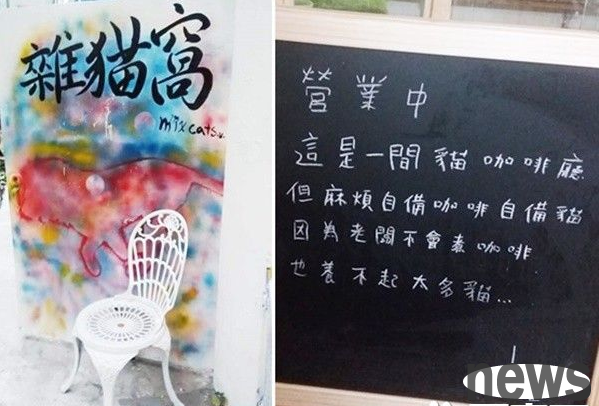 雜猫窩
mix cats
營業中
這是一間貓咖啡廳
但麻煩自備咖啡自備貓
因為老闆不會煮咖啡
也養不起太多貓...
news